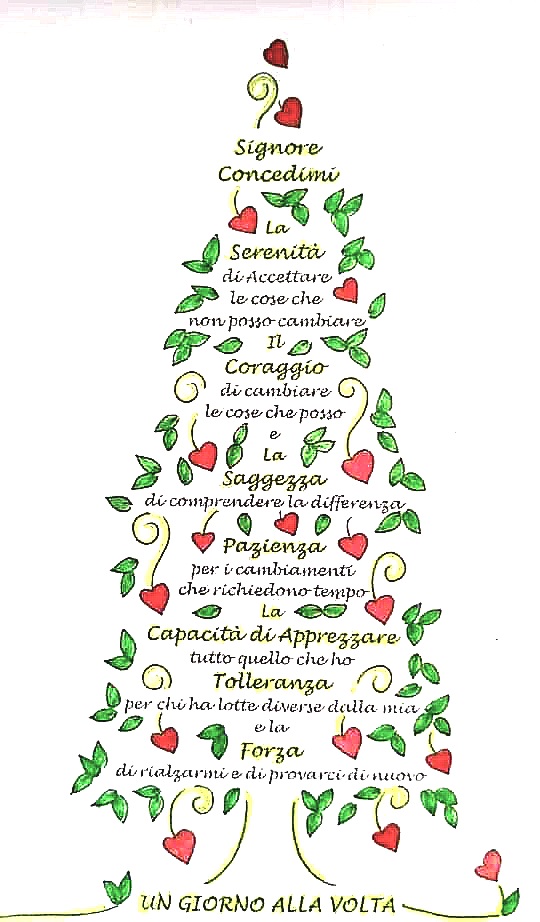 Signore
Concedimi
La
Serenità
di Accettare
le cose che
non posso cambiare
Il
Coraggio
di cambiare
le cose che posso
e
La
Saggezza
di comprendere la differenza
Pazienza
per i cambiamenti
che richiedono tempo
La
Capacità di Apprezzare
tutto quello che ho
Tolleranza
per chi ha lotte diverse dalla mia
e la
Forza
di rialzarmi e di provarci di nuovo
UN GIORNO ALLA VOLTA